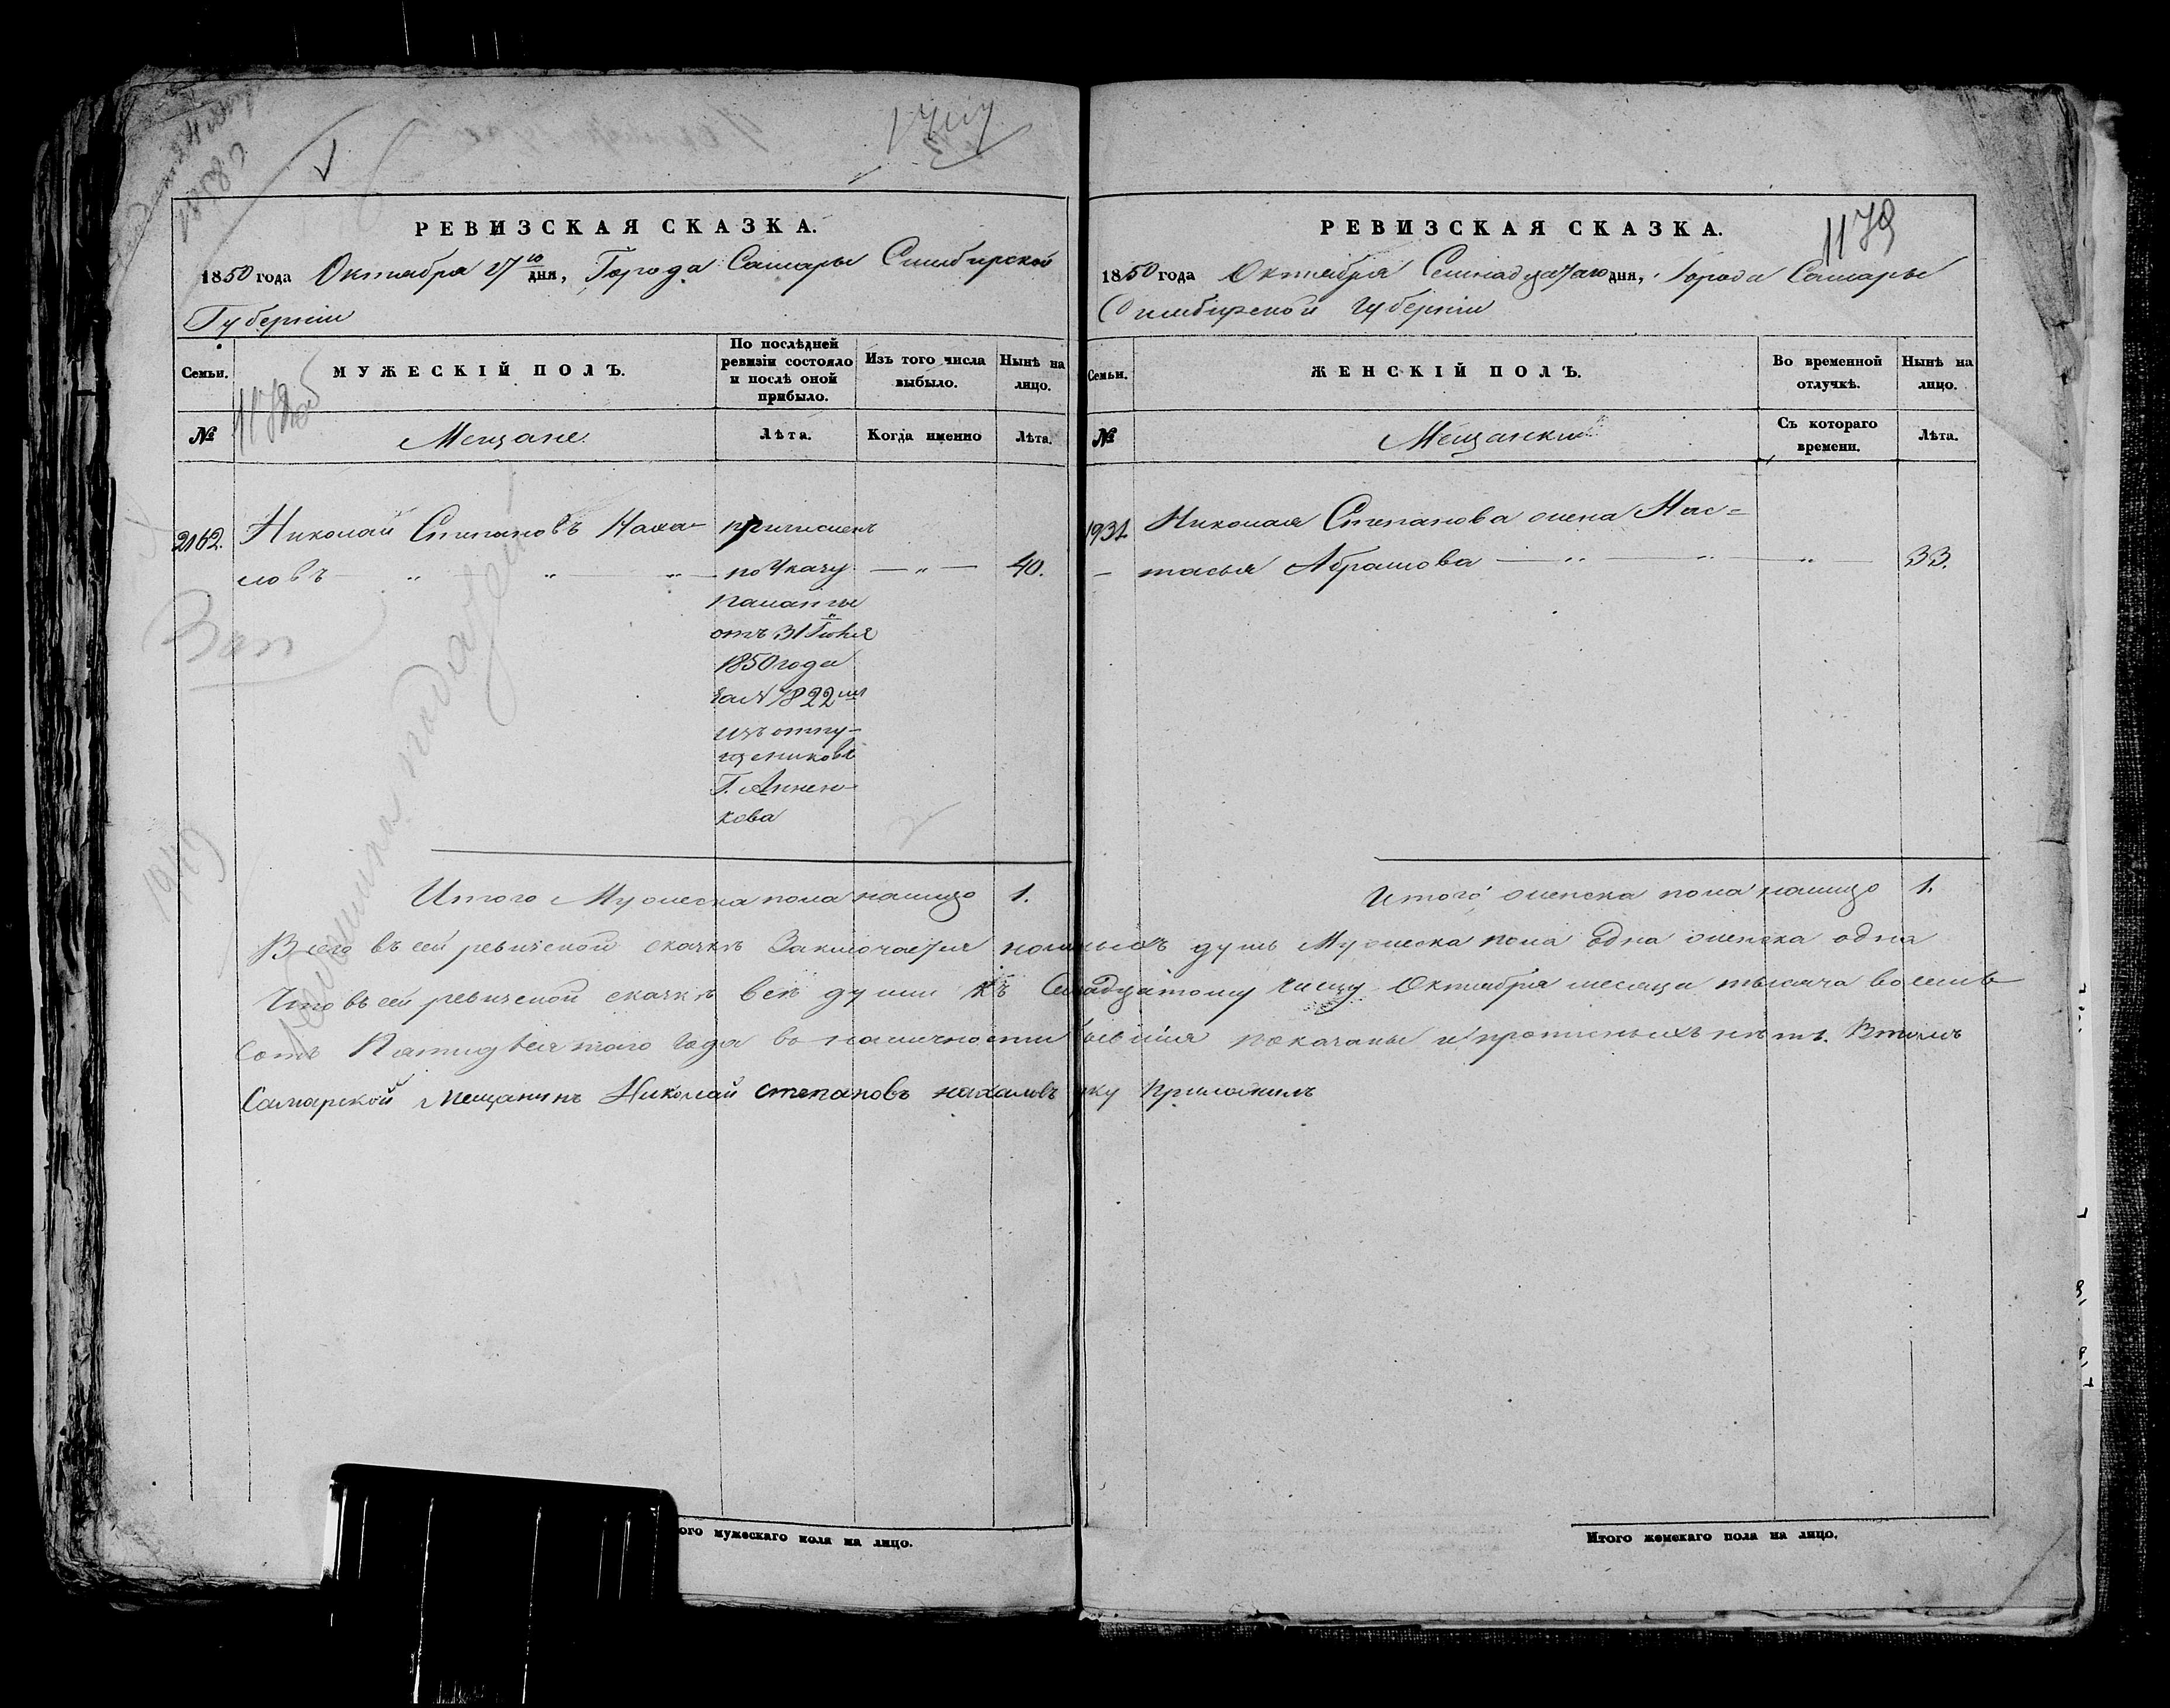 РЕВИЗСКАЯ СКАЗКА.
1850 года Октября 17го дня, Города Самары Симбирской
Губернiи
Семьи.
МУЖЕСКІЙ ПОЛЪ.
По послѣдней ревизіи состояло и послѣ оной прибыло.
Изъ того числа выбыло.
Нынѣ на лицо.
№
Мещане.
Лѣта.
Когда именно
Лѣта.
2162. Николай Степановъ Наха-
ловъ — 40.
причисленъ
по Указу
Палаты
отъ 31 Iюля
1850 года
за № 7822м
изъ отпу-
щениковъ
Г. Аннен-
кова
Зап
1949
Итого Мужеска пола налицо 1.
РЕВИЗСКАЯ СКАЗКА.
1179
1850 года Октября Семнадцатаго дня, Города Самары
Симбирской Губернiи
Семьи.
ЖЕНСКІЙ ПОЛЪ.
Во временной отлучкѣ.
Нынѣ на лицо.
№
Мещански
Съ котораго времени.
Лѣта.
1931. Николая Степанова жена Нас=
тасья Абрамова — 33.
Итого женска пола налицо 1.
Всего въ сей ревизской сказкѣ Заключается наличныхъ душъ Мужеска пола одна женска одна
Что въ сей ревизской сказкѣ всѣ души къ Семнадцатому числу Октября месяца тысяча восемь
сотъ Пятидесятаго года въ наличности бывшiя показаны и прописныхъ нѣтъ. Втомъ
Самарской Мещанинъ Николай степановъ нахаловъ руку приложилъ
ого мужескаго пола на лицо.
Итого женскаго пола на лицо.